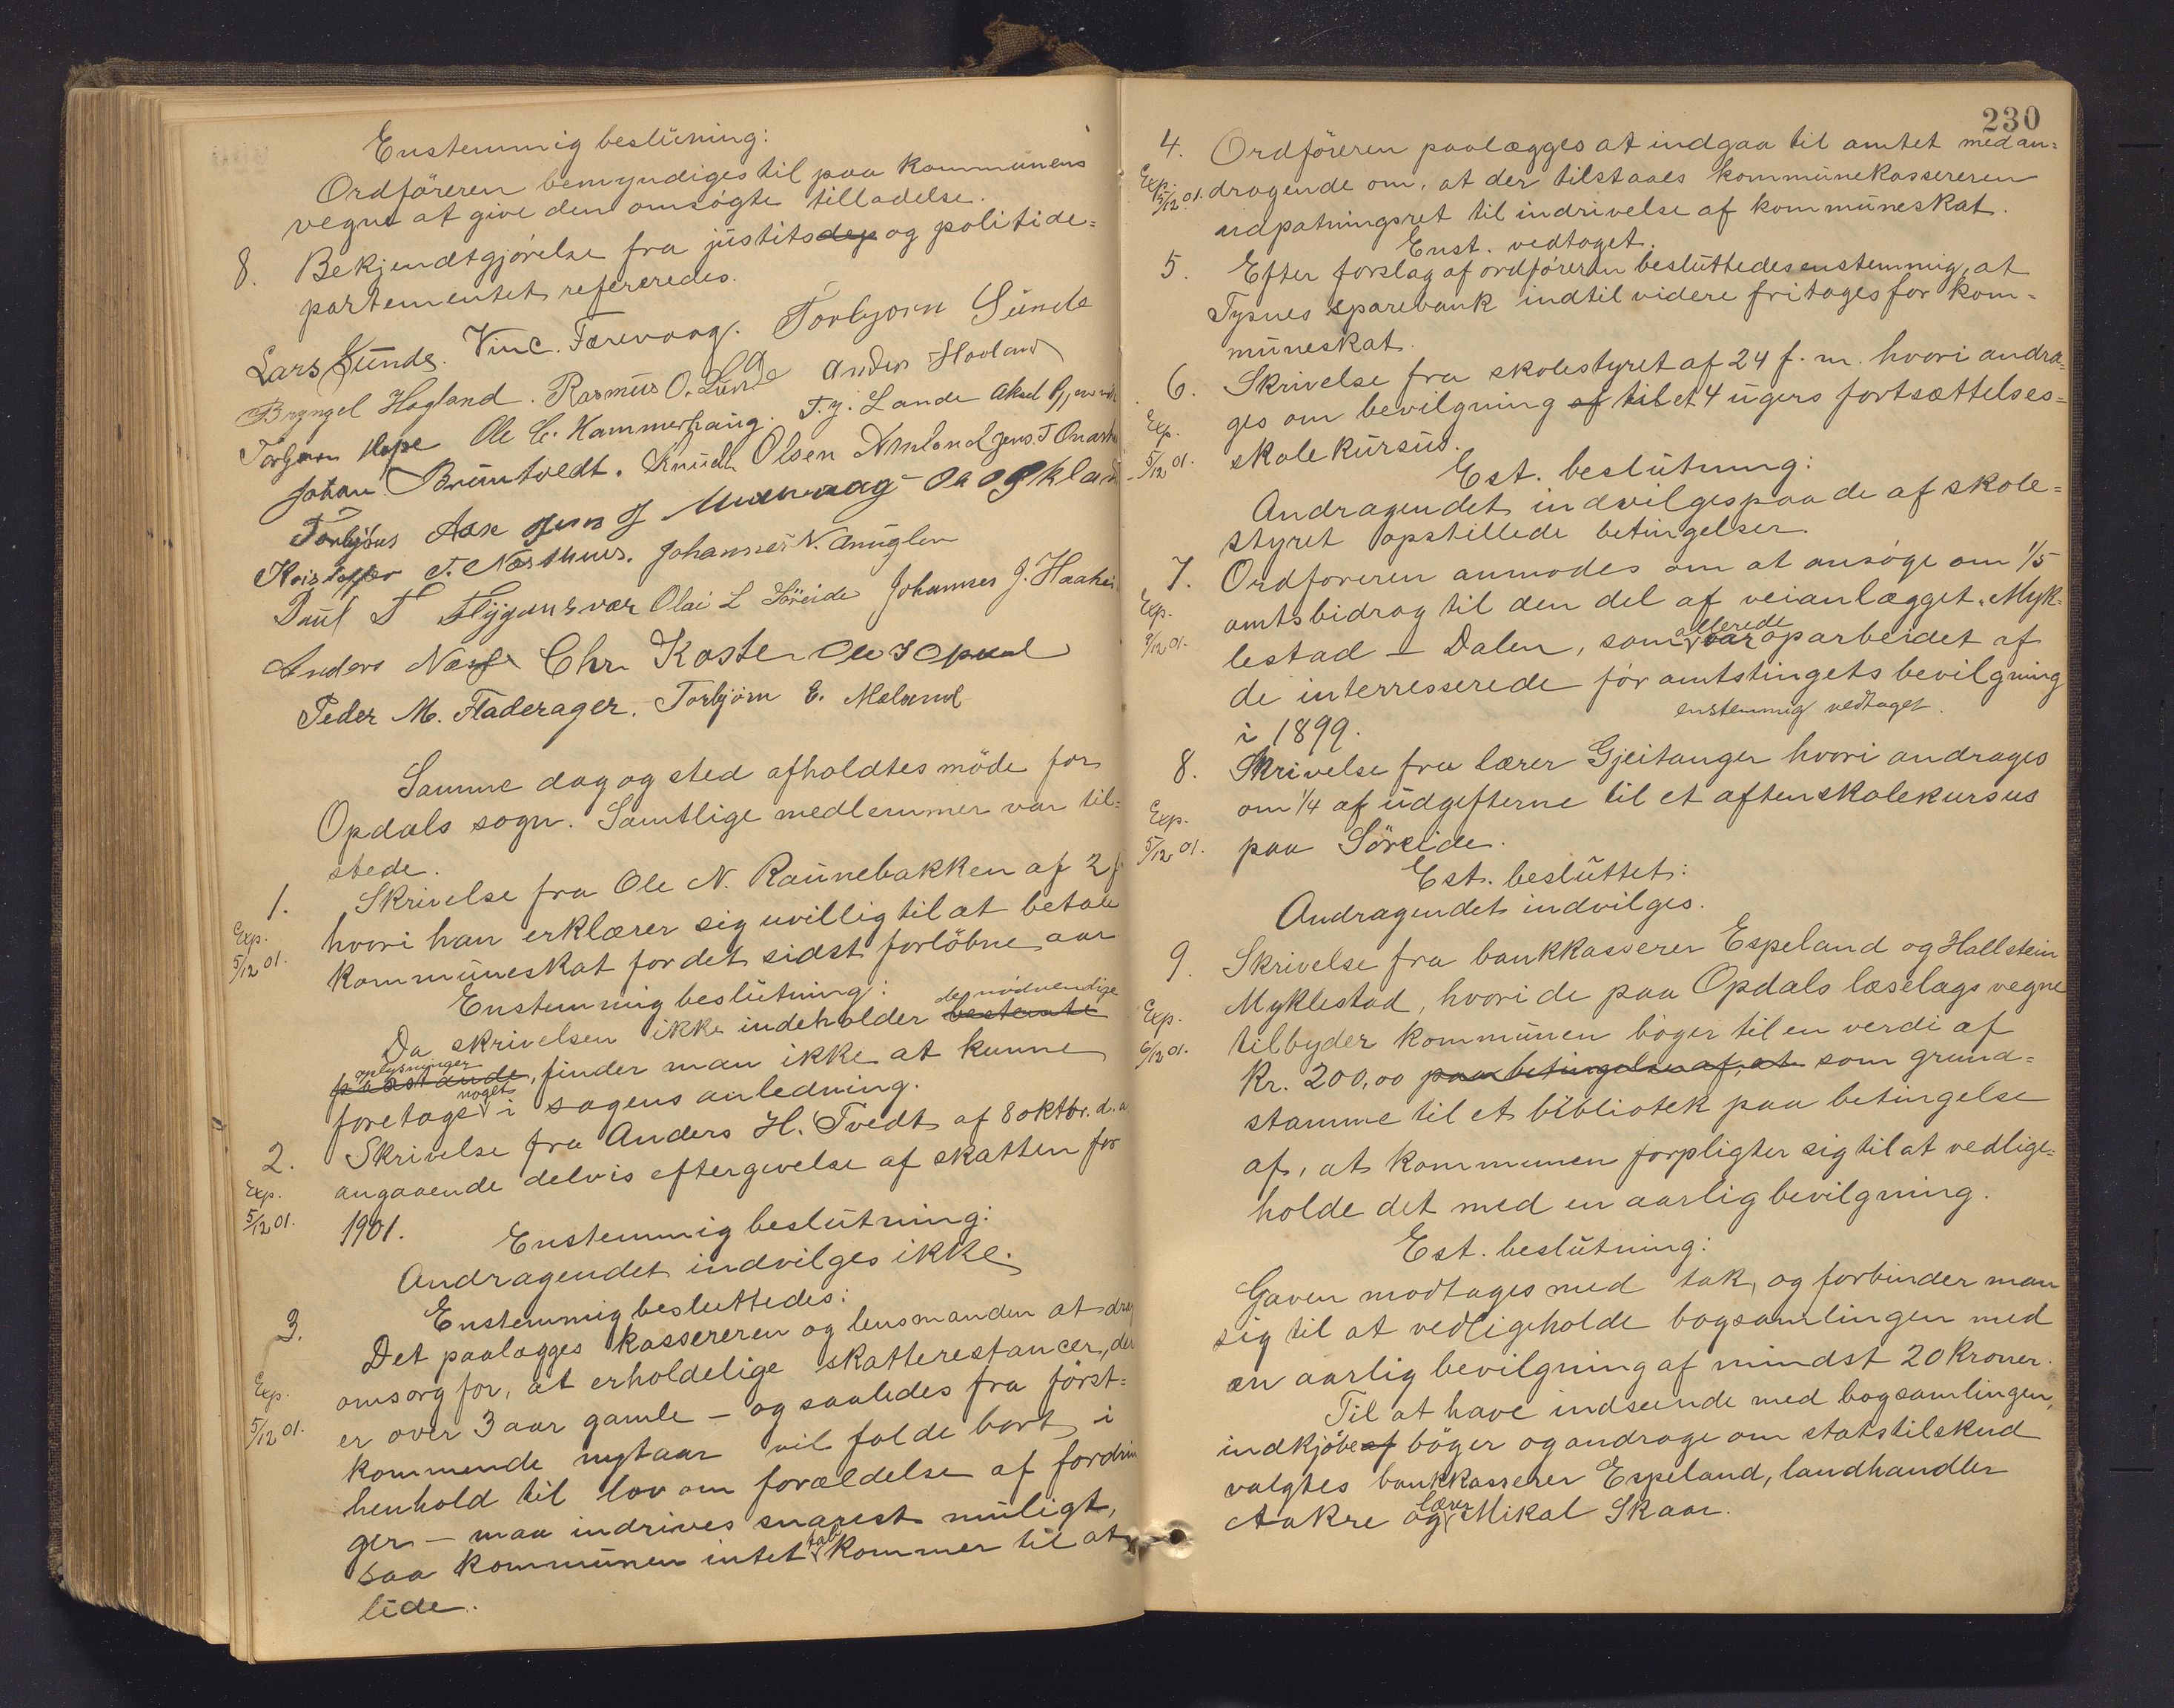 Enstemmig beslutning:
Ordföreren bemyndiges til paa kommunens
vegne at give den omsögte tilladelse.
8. Bekjendtgjörelse fra justitsdep og politide=
partementet refereredes.
Lars Sunde. Vinc. Færevaag. Torbjorn Sunde
Bryngel Hagland. Rasmus O. Lunde Anders Hovland
Torbjørn Hope Ole C. Hammerhaug. T. J. Lande Aksel
Johan Bruntvedt. Knudt Olsen Jens. T
Torbjöns Aase Jens J
Kristoffer T. Næsthuus. Johannes N. Anuglen
Paul T Flygansvær Olai L Söreide Johannes J.
Anders Næss Chr. Koste Ole J Opdal
Peder M. Fladerager. Torbjörn E. Meland
Samme dag og sted afholdtes möde for
Opdals sogn. Samtlige medlemmer var til=
stede.
1. Skrivelse fra Ole N. Raunebakken af 2 f
Exp. hvori han erklærer sig uvillig til at betale
5/12 01. kommuneskat for det sidst forlöbne aar
Enstemmig beslutning:
de nödvendige
Da skrivelsen ikke indeholder bestemte
oplysninger
paastande, finder man ikke at kunne
noget
foretage i sagens anledning.
2. Skrivelse fra Anders H. Tvedt af 8 oktbr. d. a
Exp. angaaende delvis eftergivelse af skatten for
5/12 01. 1901.
Enstemmig beslutning:
Andragendet indvilges ikke.
Enstemmig besluttedes:
3. Det paalægges kassereren og lensmanden at drag
Exp. omsorg for, at erholdelige skatterestancer, der
5/12 01. er over 3 aar gamle – og saaledes fra först=
kommende nytaar vil falde bort i
henhold til lov om forældelse af fordrin
ger – maa indrives snarest muligt,
tab
saa kommunen intet kommer til at
lide.
230
4. Ordföreren paalægges at indgaa til amtet med an=
Exp. 5/12 01. dragende om, at der tilstaaes kommunekassereren
udpatningsret til indrivelse af kommuneskat.
Enst. vedtaget.
5. Efter forslag af ordföreren besluttedes enstemmig, at
Tysnes sparebank indtil videre fritages for kom=
muneskat.
6. Skrivelse fra skolestyret af 24 f. m. hvori andra=
Exp. ges om bevilgning af til et 4 ugers fortsættelses=
5/12 01. skolekursus.
Est. beslutning:
Andragendet indvilges paa de af skole=
styret opstillede betingelser.
7. Ordföreren anmodes om at ansöge om 1/5
Exp. amtsbidrag til den del af veianlægget „Myk=
allerede
9/12 01. lestad – Dalen, som var oparbeidet af
de interresserede för amtstingets bevilgning
i 1899. enstemmig vedtaget.
8. Skrivelse fra lærer Gjeitanger hvori andrages
Exp. om 1/4 af udgifterne til et aftenskolekursus
5/12 01. paa Söreide.
Est. besluttet:
Andragendet indvilges.
9. Skrivelse fra bankkasserer Espeland og Hallstein
Exp. Myklestad, hvori de paa Opdals læselags vegne
6/12 01. tilbyder kommunen böger til en verdi af
Kr. 200,00 paa betingelse af, at som grund=
stamme til et bibliotek paa betingelse
af, at kommunen forpligter sig til at vedlige=
holde det med en aarlig bevilgning.
Est. beslutning:
Gaven modtages med tak, og forbinder man
sig til at vedligeholde bogsamlingen med
en aarlig bevilgning af mindst 20 kroner.
Til at have indseende med bogsamlingen,
indkjöbe af böger og andrage om statstilskud
valgtes bankkasserer Espeland, landhandler
lærer
Aakre og Mikal Skaar.